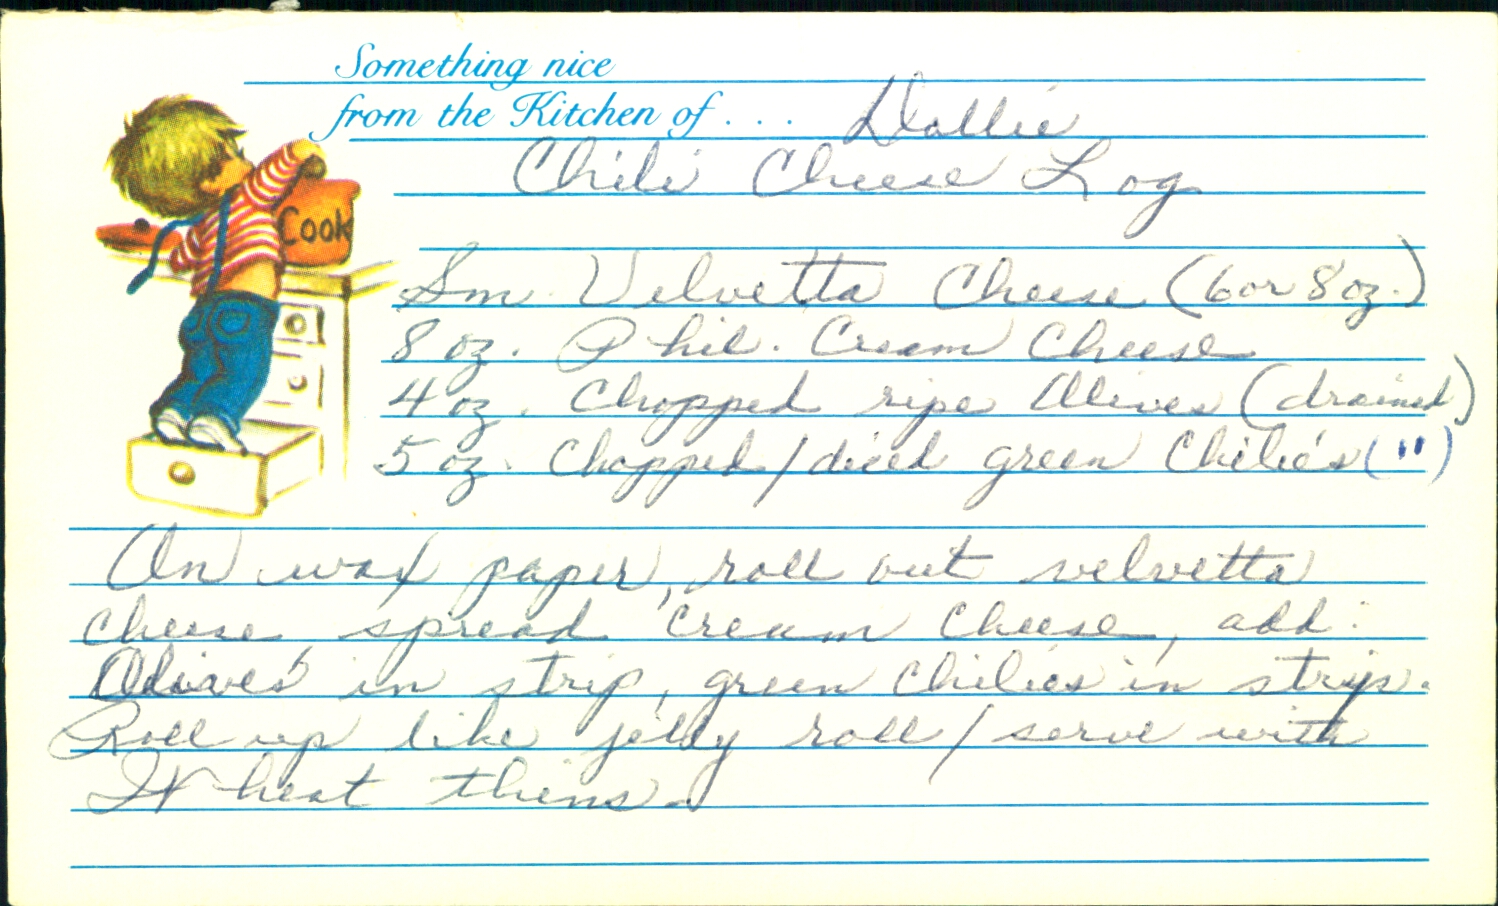 Something nice
from the Kitchen of . . . Dollie
Chili Cheese Log
Cook
Sm. Velvetta Cheese (6 or 8 oz.)
8 oz. Phil. Cream Cheese
4 oz. Chopped ripe Olives (drained)
5 oz. Chopped/diced green Chilie's (")
On wax paper, roll out velvetta
cheese, spread cream cheese, add:
Olives in strip, green chilies in strip.
Roll up like jelly roll/serve with
Wheat thins.